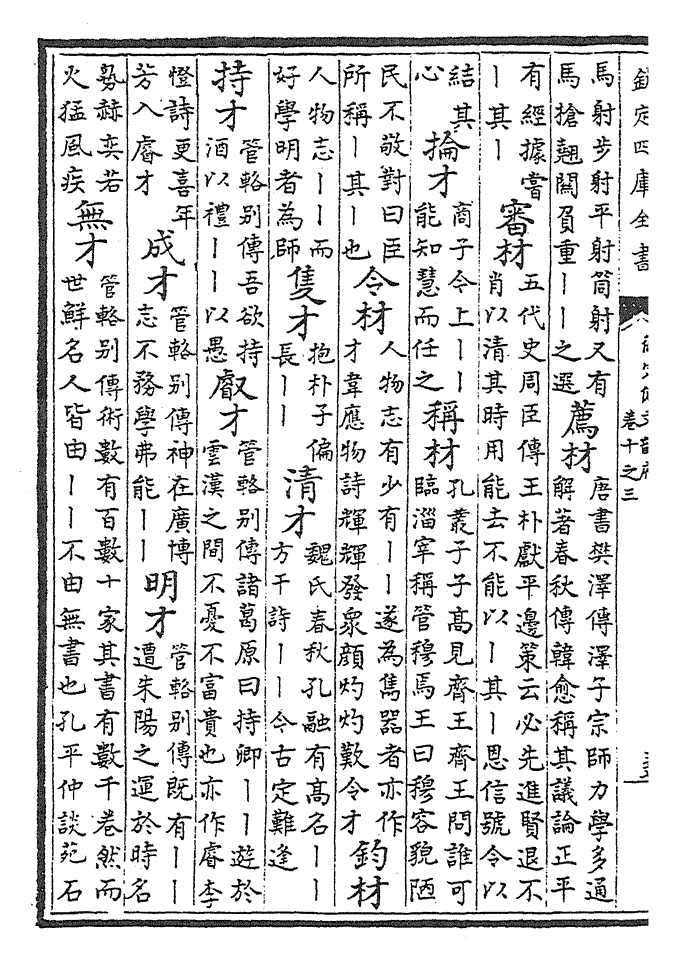 欽定四庫全書
卷十之三
馬射步射平射筒射又有
馬搶翹關負重丨丨之選
薦材
唐書樊澤傳澤子宗師力學多通
解著春秋傳韓愈稱其議論正平
有經據嘗
丨其丨
審材
五代史周臣傳王朴獻平邊策云必先進賢退不
肖以清其時用能去不能以丨其丨恩信號令以
結其
心
掄才
商子今上丨丨
能知慧而任之
稱材
孔叢子子高見齊王齊王問誰可
臨淄宰稱管穆焉王曰穆容貌陋
民不敬對曰臣
所稱丨其丨也
令材
人物志有少有丨丨遂為雋器者亦作
才韋應物詩輝輝發衆顔灼灼歎令才
鈞材
人物志丨丨而
好學明者為師
隻才
抱朴子偏
長丨丨
清才
魏氏春秋孔融有高名丨丨
方干詩丨丨今古定難逢
持才
管輅别傳吾欲持
酒以禮丨丨以愚
叡才
管輅别傳諸葛原曰持卿丨丨遊於
雲漢之間不憂不富貴也亦作睿李
憕詩更喜年
芳入睿才
成才
管輅别傳神在廣博
志不務學弗能丨丨
明才
管輅别傳既有丨丨
遭朱陽之運於時名
勢赫奕若
火猛風疾
無才
管輅别傳術數有百數十家其書有數千卷然而
世鮮名人皆由丨丨不由無書也孔平仲談苑石